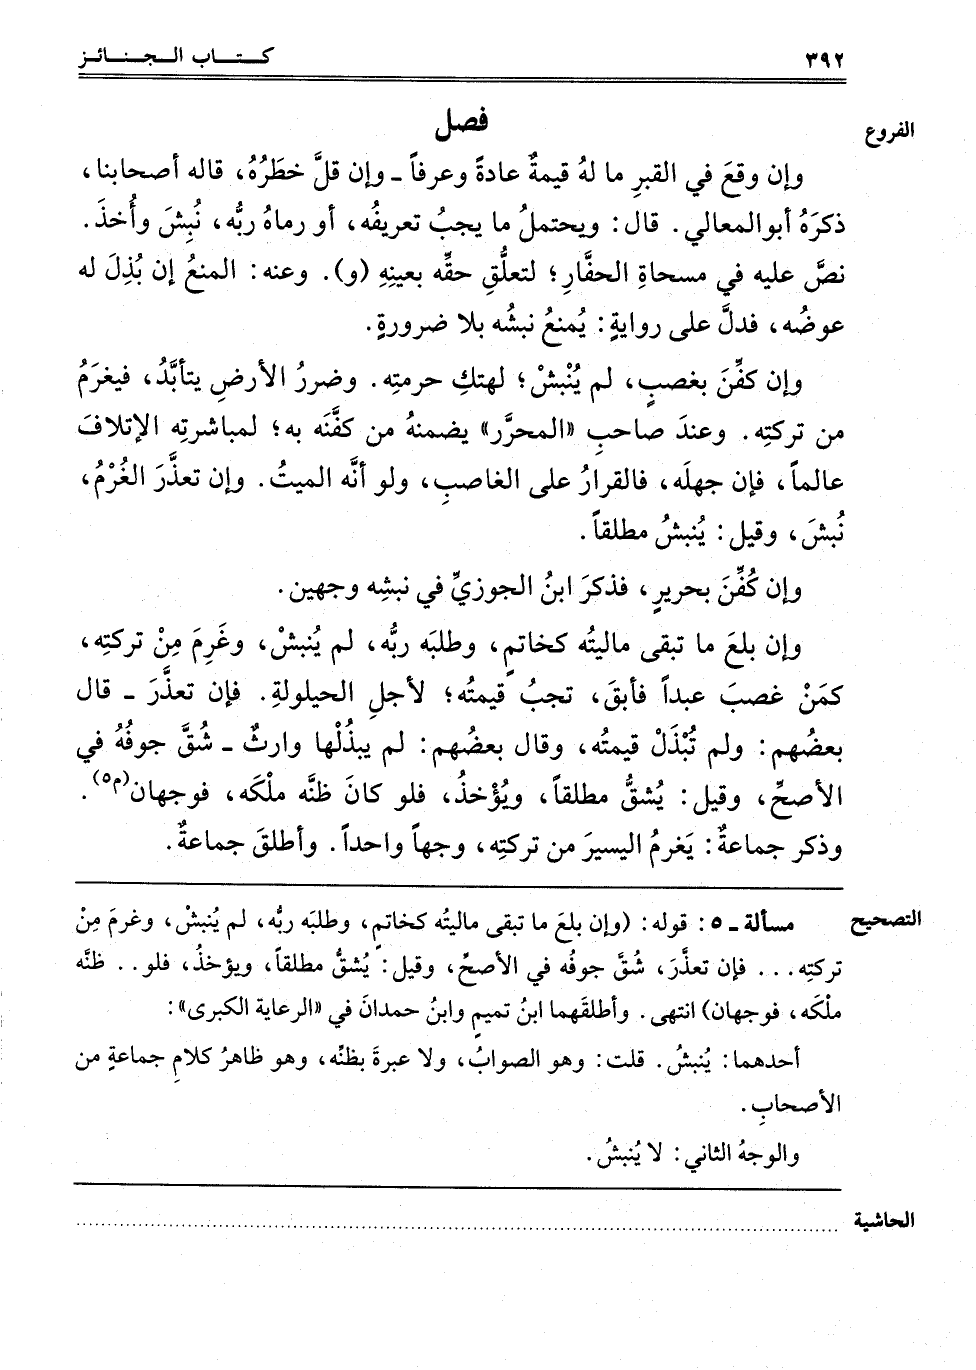 ٣٩٢
كـتـاب الـجـنـائـز
الفروع
فصل
وإن وقعَ في القبرِ ما لهُ قيمةٌ عادةً وعرفاً ـ وإن قلَّ خطَرُهُ، قاله أصحابنا،
ذكرَهُ أبوالمعالي. قال: ويحتملُ ما يجبُ تعريفُه، أو رماهُ ربُّه، نُبِشَ وأُخذَ.
نصَّ عليه في مسحاةِ الحفَّارِ؛ لتعلُّقِ حقِّه بعينِهِ (و). وعنه: المنعُ إن بُذِلَ له
عوضُه، فدلَّ على روايةٍ: يُمنعُ نبشُه بلا ضرورةٍ.
وإن كفِّنَ بغصبٍ، لم يُنْبشْ؛ لهتكِ حرمتِه. وضررُ الأرضِ يتأبَّدُ، فيغرَمُ
من تركتِه. وعندَ صاحبِ «المحرَّر» يضمنهُ من كفَّنَه به؛ لمباشرتِه الإتلافَ
عالماً، فإن جهلَه، فالقرارُ على الغاصبِ، ولو أنَّه الميتُ. وإن تعذَّرَ الغُرْمُ،
نُبشَ، وقيل: يُنبشُ مطلقاً.
وإن كُفِّنَ بحريرٍ، فذكرَ ابنُ الجوزيِّ في نبشِه وجهين.
وإن بلعَ ما تبقى ماليتُه كخاتمٍ، وطلبَه ربُّه، لم يُنبشْ، وغَرِمَ مِنْ تركتِه،
كمَنْ غصبَ عبداً فأبقَ، تجبُ قيمتُه؛ لأجلِ الحيلولةِ. فإن تعذَّرَ ـ قال
بعضُهم: ولم تُبْذَلْ قيمتُه، وقال بعضُهم: لم يبذُلْها وارثٌ ـ شُقَّ جوفُهُ في
الأصحِّ، وقيل: يُشقُّ مطلقاً، ويُؤْخذُ، فلو كانَ ظنَّه ملْكَه، فوجهان(م٥).
وذكر جماعةٌ: يَغرمُ اليسيرَ من تركتِه، وجهاً واحداً. وأطلقَ جماعةٌ.
التصحيح
مسألة ـ ٥: قوله: (وإن بلعَ ما تبقى ماليتُه كخاتمٍ، وطلبَه ربُّه، لم يُنبشْ، وغرمَ مِنْ
تركتِه... فإن تعذَّرَ، شُقَّ جوفُه في الأصحِّ، وقيل: يُشقُّ مطلقاً، ويؤخذُ، فلو.. ظنَّه
ملْكَه، فوجهان) انتهى. وأطلقَهما ابنُ تميمٍ وابنُ حمدانَ في «الرعاية الكبرى»:
أحدهما: يُنبشُ. قلت: وهو الصوابُ، ولا عبرةَ بظنِّه، وهو ظاهرُ كلامِ جماعةٍ من
الأصحابِ.
والوجهُ الثاني: لا يُنبشُ.
الحاشية